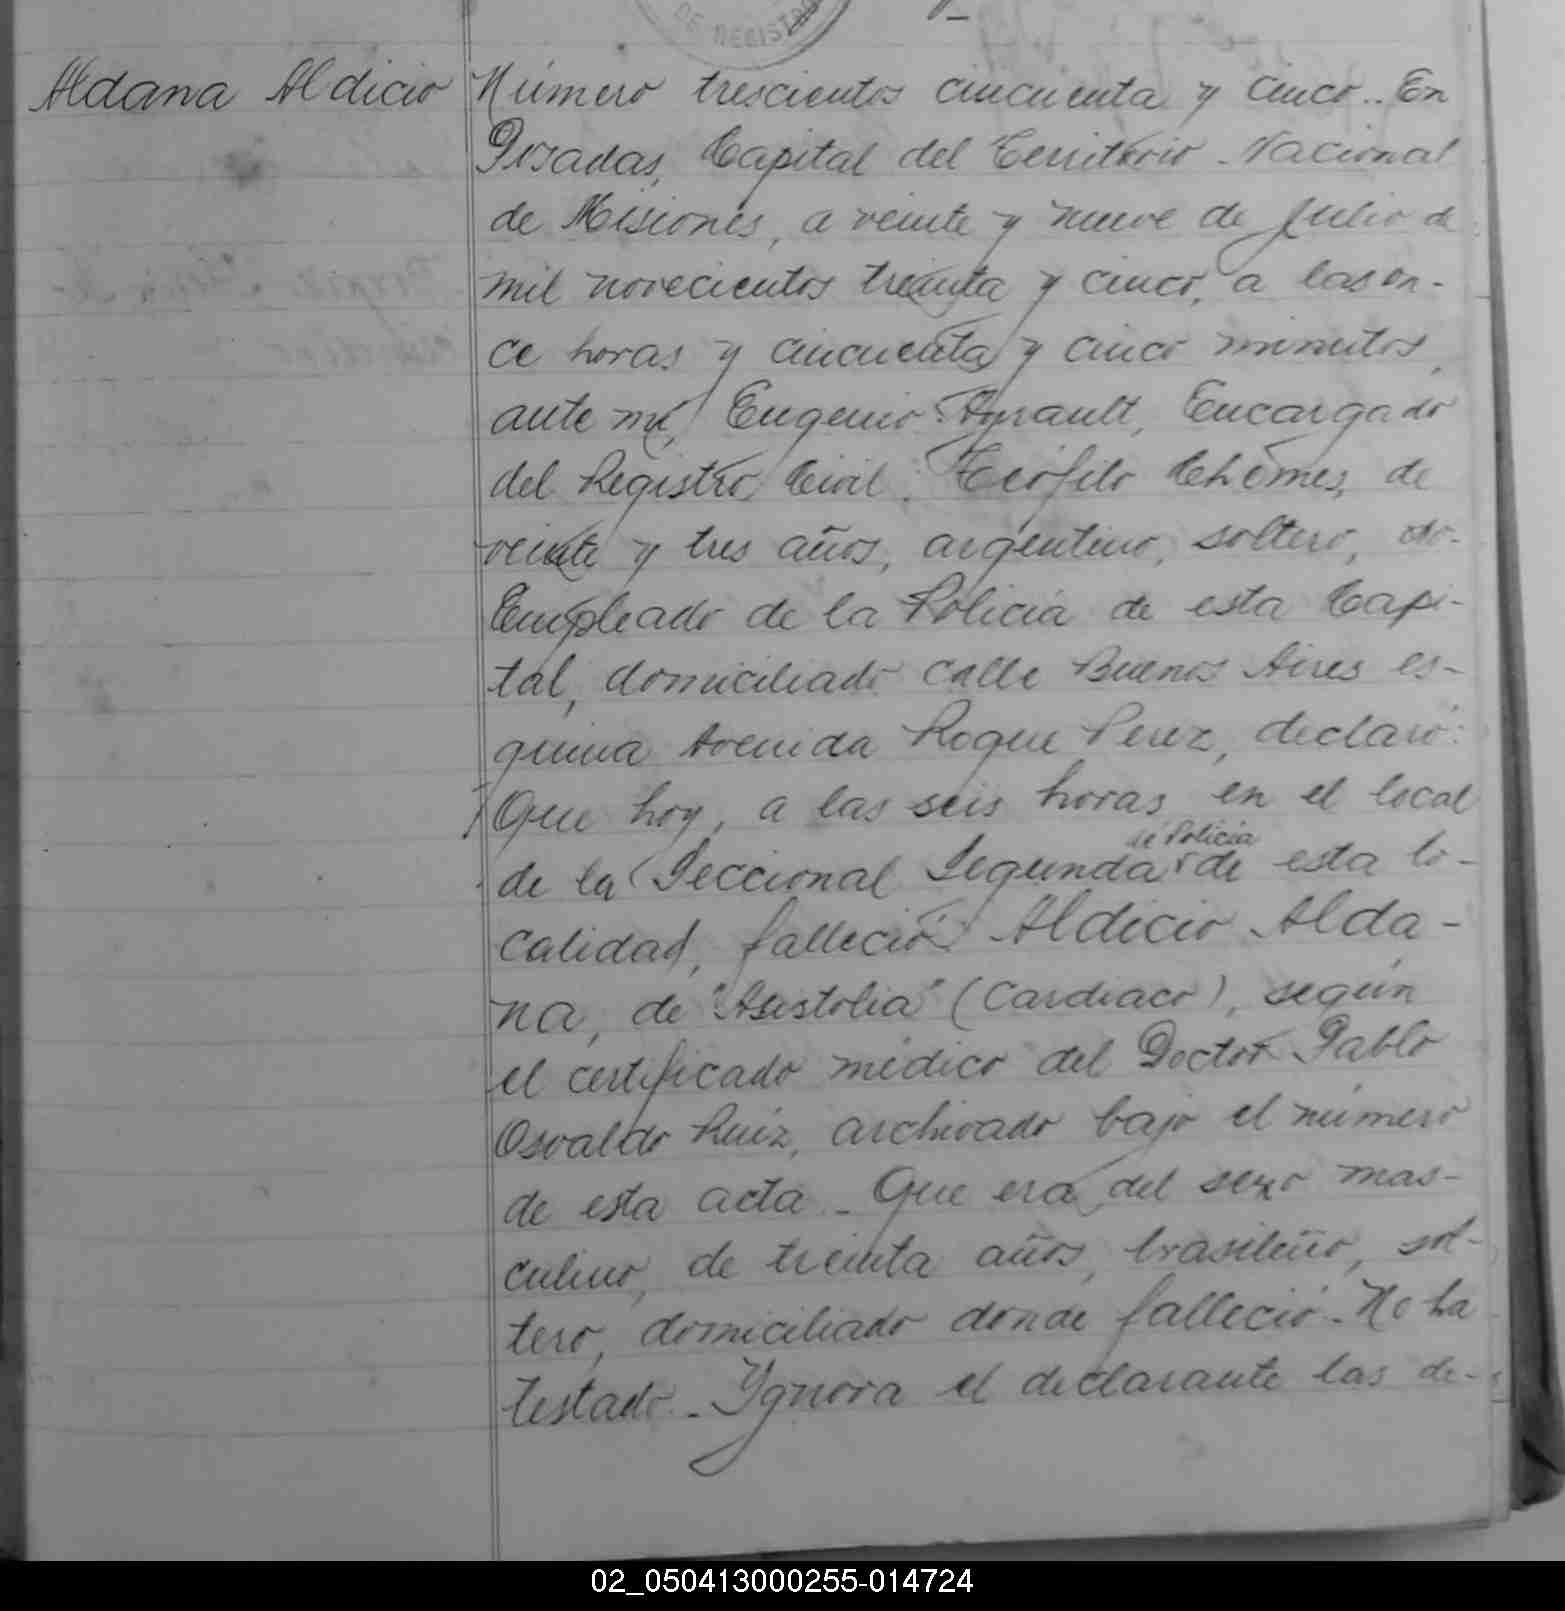 DE REGISTRO
Aldana Aldicio
Número trescientos cincuenta y cinco.. En
Posadas, Capital del Territorio Nacional
de Misiones, a veinte y nueve de Julio de
mil novecientos treinta y cinco, a las on-
ce horas y cincuenta y cinco minutos,
ante mí, Eugenio Ayrault, Encargado
del Registro Civil, Teófilo Chemes, de
veinte y tres años, argentino, soltero,
Empleado de la Policía de esta Capi-
tal, domiciliado calle Buenos Aires es-
quina Avenida Roque Perez, declaró:
Que hoy, a las seis horas en el local
de Policía
de la Seccional Segunda de esta lo-
calidad, falleció Aldicio Alda-
na, de "Asistolia" (Cardiaco), según
el certificado médico del Doctor Pablo
Osvaldo Ruiz, archivado bajo el número
de esta acta. Que era del sexo mas-
culino, de treinta años, brasileño, sol-
tero, domiciliado donde falleció. No ha
testado. Ygnora el declarante las de-
02_050413000255-014724